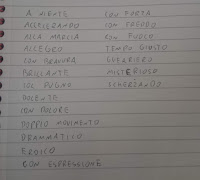 A NIENTE
ACCELERANDO
ALLA MARCIA
ALLEGRO
CON BRAVURA
BRILLANTE
COL PUGNO
DOLENTE
CON DOLORE
DOPPIO MOVIMENTO
DRAMMATICO
EROICO
CON ESPRESSIONE
CON FORZA
CON FREDDO
CON FUOCO
TEMPO GIUSTO
GUERRIERO
MISTERIOSO
SCHERZANDO